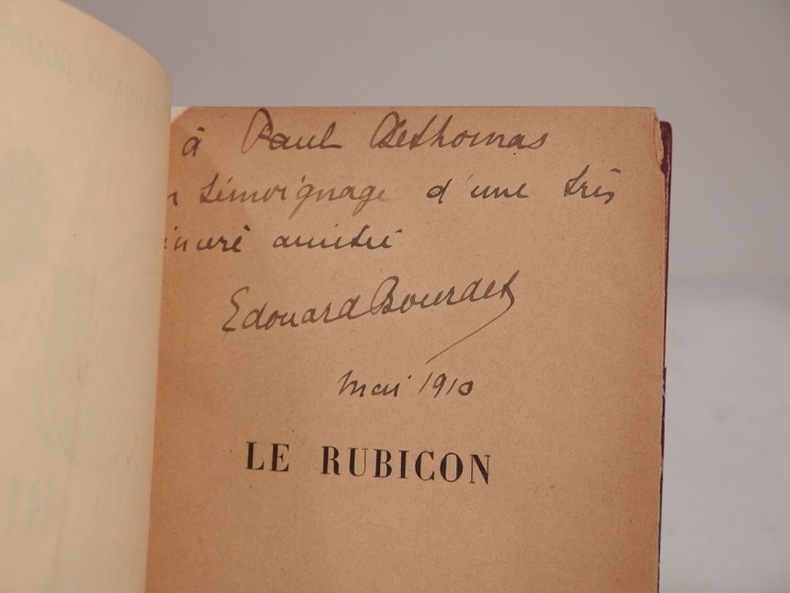 à Paul Dethomas
n témoignage d'une très
incère amitié
Edouard Bourdet
mai 1910
LE RUBICON